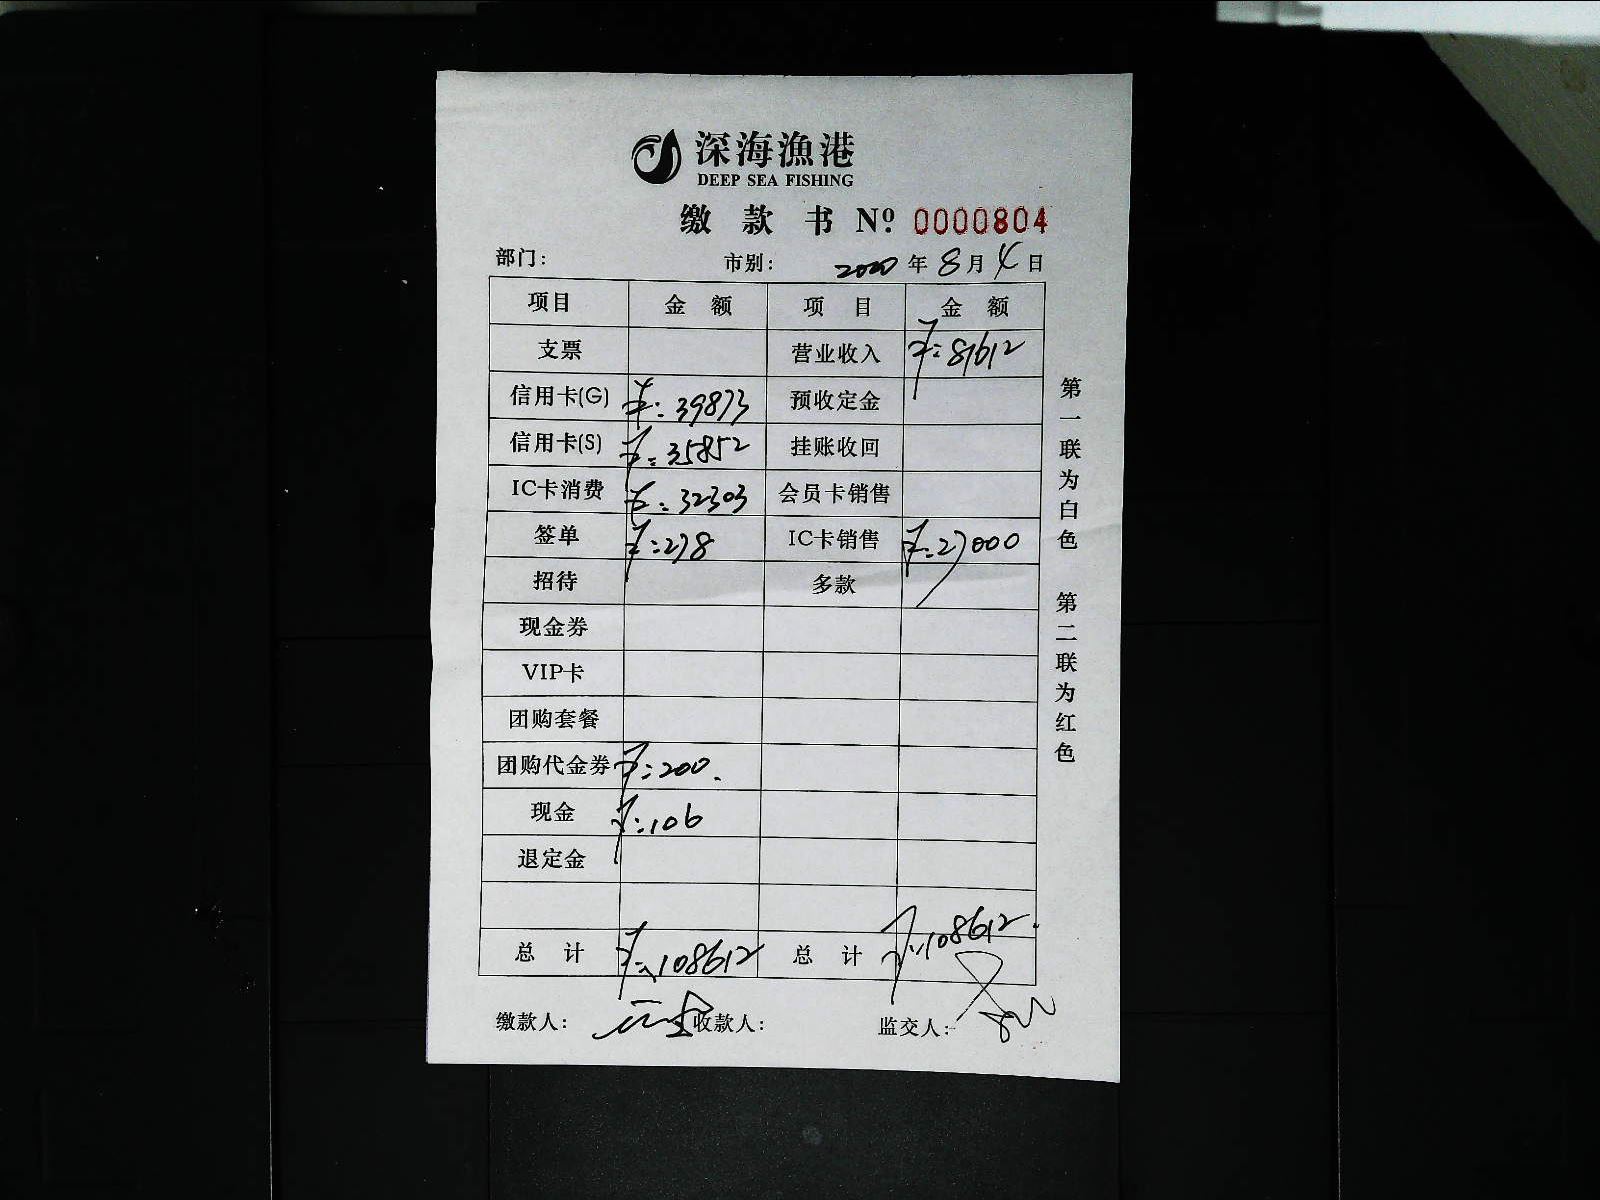 深海渔港
DEEP SEA FISHING
缴 款 书 Nº: 0000804
部门: 市别: 2020 年 8 月 4 日
项目 金 额 项 目 金 额
支票 营业收入 ¥:81612
信用卡(G) ¥:39873 预收定金
信用卡(S) ¥:35852 挂账收回
IC卡消费 ¥:32303 会员卡销售
签单 ¥:278 IC卡销售 ¥:27000
招待 多款
现金券
VIP卡
团购套餐
团购代金券 ¥:200.
现金 ¥:106
退定金
总 计 ¥:108612 总 计 ¥:108612.
缴款人: 收款人: 监交人:
第一联为白色 第二联为红色